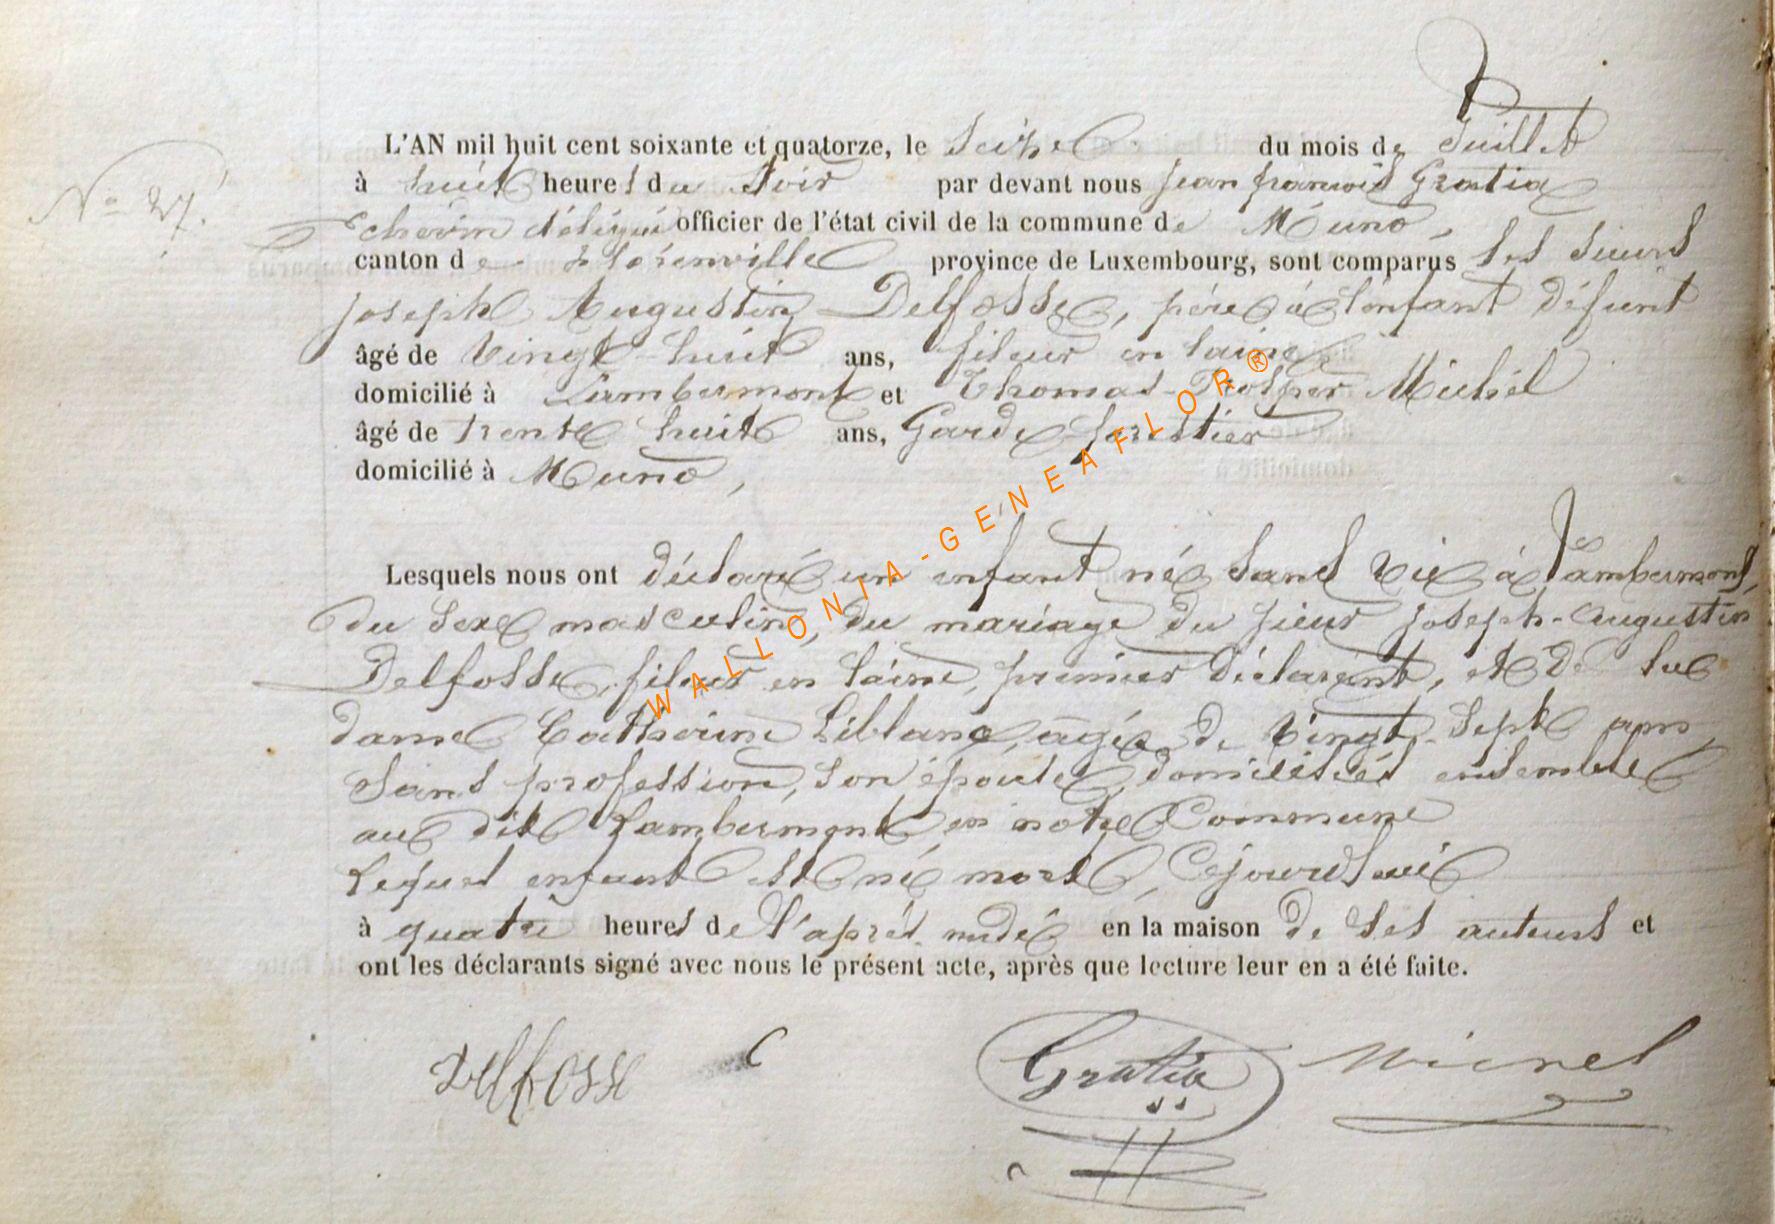 N° 27.
L'AN mil huit cent soixante et quatorze, le Seize du mois de Juillet
à huit heures du Soir par devant nous Jean françois Gratia
Echevin délégué officier de l'état civil de la commune de Muno,
canton de Florenville province de Luxembourg, sont comparus les Sieurs
Joseph Augustin Delfosse, père à l'enfant défunt
âgé de Vingt-huit ans, fileur en laine
domicilié à Lambermont et Thomas-Prosper Michel
âgé de trente huit ans, Garde-forestier
domicilié à Muno,
Lesquels nous ont déclaré un enfant né Sans Vie à Lambermont,
du Sexe masculin, du mariage du Sieur Joseph-Augustin
Delfosse, fileur en laine, premier déclarant, et de la
dame Catherine Leblanc, agée de Vingt-Sept ans,
Sans profession, Son épouse, domiciliés ensemble
au dit Lambermont, en notre Commune
Lequel enfant est né mort, Cejourd'hui
à quatre heures de l'après-midi en la maison de Ses auteurs et
ont les déclarants signé avec nous le présent acte, après que lecture leur en a été faite.
Delfosse Gratia Michel
WALLONIA-GENEAFLOR®